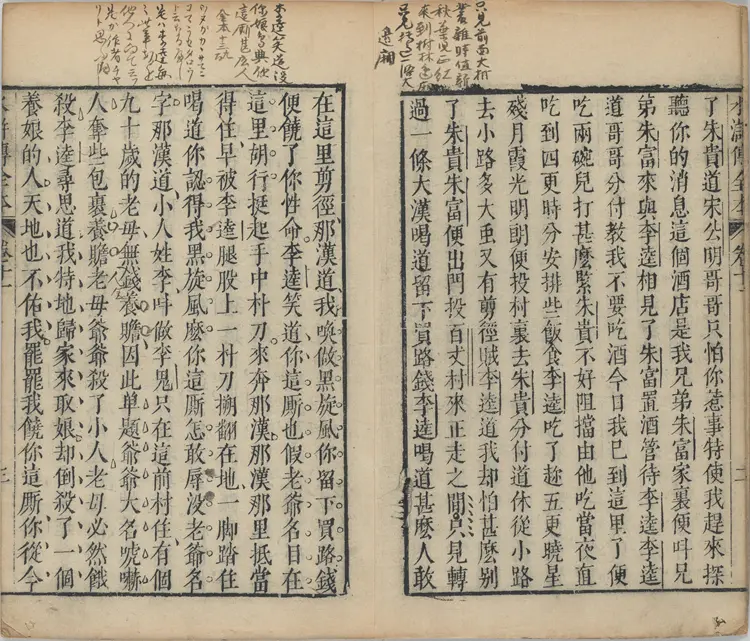 只見前面大樹
叢雜時值新
秋葉兒正紅
来到樹林邊廂
水滸傳全本 卷十一 二
了朱貴道宋公明哥哥只怕你惹事特使我趕來探
聽你的消息這個酒店是我兄弟朱富家裏便呌兄
弟朱富來與李逵相見了朱富置酒管待李逵李逵
道哥哥分付教我不要吃酒今日我已到這里了便
吃兩碗兒打甚麼緊朱貴不好阻擋由他吃當夜直
吃到四更時分安排些飯食李逵吃了趂五更曉星
殘月霞光明朗便投村裏去朱貴分付道休從小路
去小路多大虫又有剪徑賊李逵道我却怕甚麽别
了朱貴朱富便出門投百丈村來正走之間只見轉
過一條大漢喝道留下買路錢李逵喝道甚麽人敢
李逵笑道沒
你娘鳥與他
這廝甚麽人
金本
在這里剪徑那漢道我喚做黑旋風你留下買路錢
便饒了你性命李逵笑道你這厮也假老爺名目在
這里胡行挺起手中朴刀來奔那漢那漢那里抵當
得住早被李逵腿股上一朴刀搠翻在地一脚踏住
喝道你認得我黑旋風麽你這厮怎敢辱没老爺名
字那漢道小人姓李呌做李鬼只在這前村住有個
九十歲的老母無錢養贍因此单題爺爺大名唬嚇
人奪些包裹養贍老母爺爺殺了小人老母必然餓
殺李逵尋思道我特地歸家來取娘却倒殺了一個
養娘的人天地也不佑我罷罷我饒你這厮你從今
水滸傳全本 卷十一 三